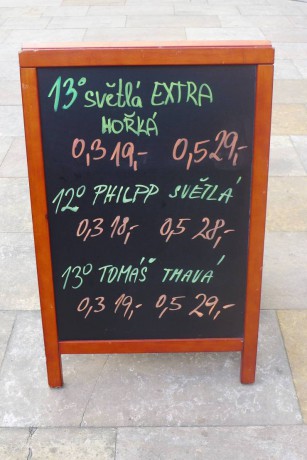 13° světlá EXTRA
HOŘKÁ
0,3 19,- 0,5 29,-
12° PHILPP SVĚTLÁ
0,3 18,- 0,5 28,-
13° TOMÁŠ TMAVÁ
0,3 19,- 0,5 29,-